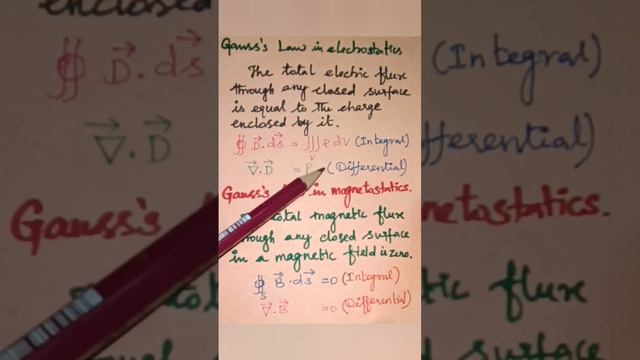 Gauss's Law in electrostatics
The total electric flux
through any closed surface
is equal to the charge
enclosed by it.
∯ D⃗.ds⃗ = ∭ᵥ ρ dv (Integral)
∇⃗.D⃗ = ρ (Differential)
Gauss's in magnetostatics.
total magnetic flux
through any closed surface
in a magnetic field is zero.
∯ₛ B⃗.ds⃗ = 0 (Integral)
∇⃗.B⃗ = 0 (Differential)